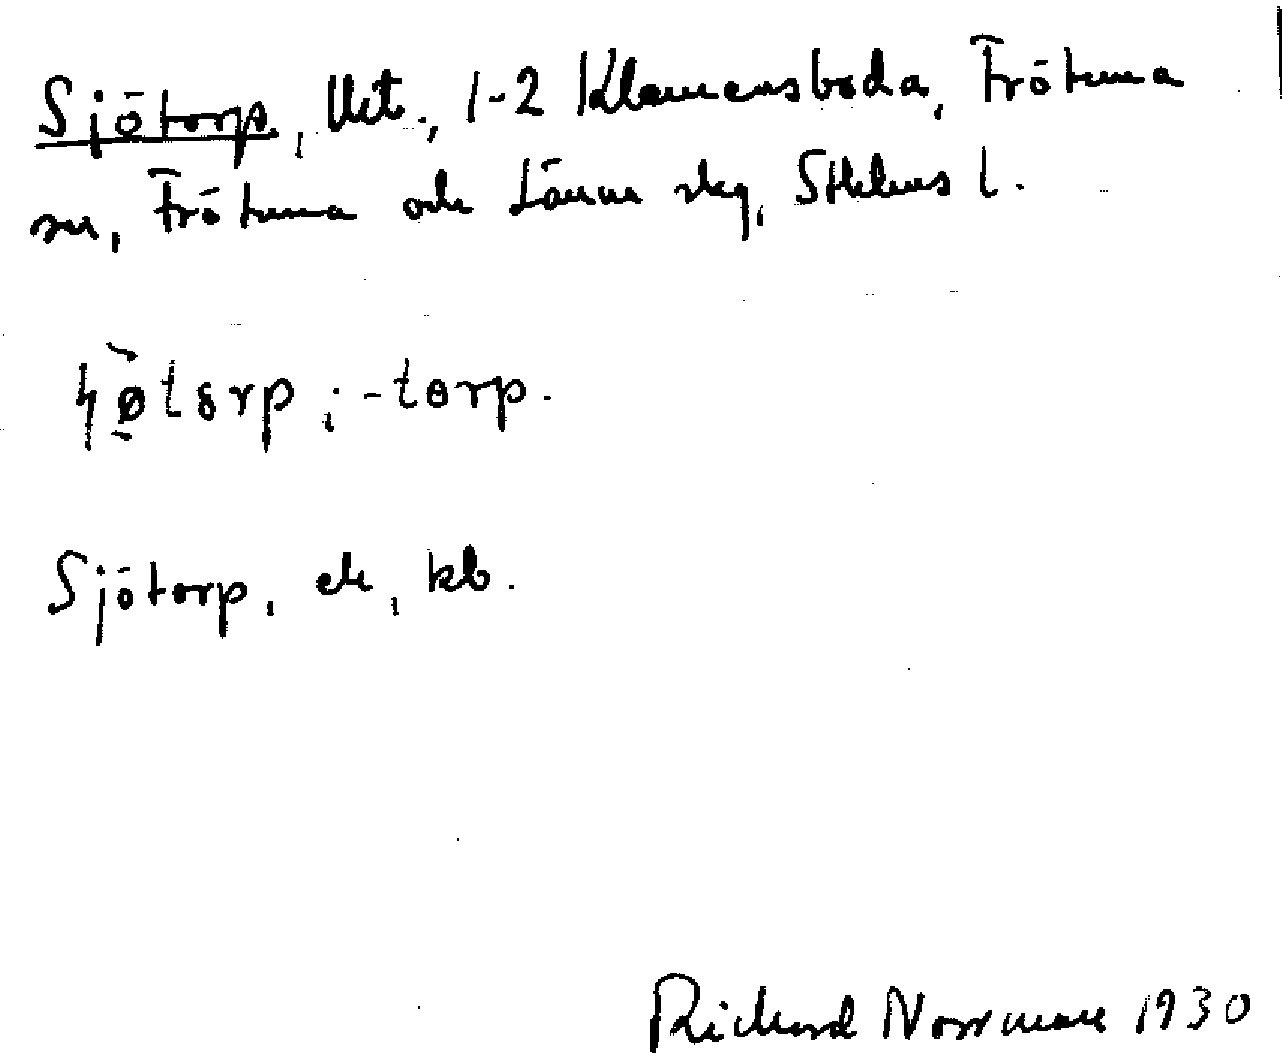 Sjötorp, lht., 1-2 Klemensboda, Frötuna
sn, Frötuna och Länna skg, Sthlms l.
ɧø̀tɵrp ; -tɵrp.
Sjötorp, ek, kb.
Richard Norrman 1930